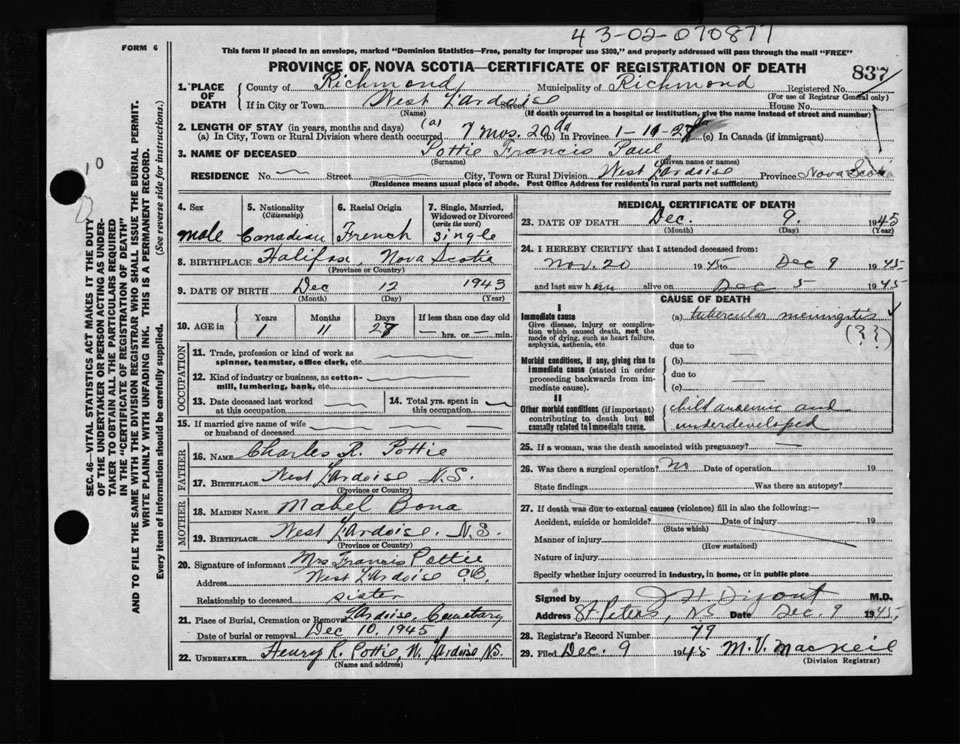 43-02-070877
FORM 6
This form if placed in an envelope, marked "Dominion Statistics—Free, penalty for improper use $300," and properly addressed will pass through the mail "FREE"
PROVINCE OF NOVA SCOTIA—CERTIFICATE OF REGISTRATION OF DEATH
837
1. PLACE OF DEATH
County of Richmond Municipality of Richmond Registered No.
(For use of Registrar General only)
If in City or Town West L'Ardoise Street House No.
(Name) (If death occurred in a hospital or institution, give the name instead of street and number)
2. LENGTH OF STAY (in years, months and days)
(a) In City, Town or Rural Division where death occurred (a) 7 mos. 20 da (b) In Province 1-11-27 da (c) In Canada (if immigrant)
3. NAME OF DECEASED Pottie Francis Paul
(Surname) (Given name or names)
RESIDENCE No. Street City, Town or Rural Division West L'Ardoise Province Nova Scotia
(Residence means usual place of abode. Post Office Address for residents in rural parts not sufficient)
4. Sex 5. Nationality (Citizenship) 6. Racial Origin 7. Single, Married, Widowed or Divorced (write the word)
Male Canadian French Single
8. BIRTHPLACE Halifax, Nova Scotia
(Province or Country)
9. DATE OF BIRTH Dec 12 1943
(Month) (Day) (Year)
10. AGE in Years Months Days If less than one day old
1 11 27 hrs. or min.
OCCUPATION
11. Trade, profession or kind of work as spinner, teamster, office clerk, etc.
12. Kind of industry or business, as cotton-mill, lumbering, bank, etc.
13. Date deceased last worked at this occupation 14. Total yrs. spent in this occupation
15. If married give name of wife or husband of deceased
FATHER
16. NAME Charles R. Pottie
17. BIRTHPLACE West L'Ardoise N.S.
(Province or Country)
MOTHER
18. MAIDEN NAME Mabel Bona
19. BIRTHPLACE West L'Ardoise, N.S.
(Province or Country)
20. Signature of informant Mrs Francis Pottie
Address West L'Ardoise CB.
Relationship to deceased sister
21. Place of Burial, Cremation or Removal L'Ardoise Cemetary
Date of burial or removal Dec 10, 1945
22. UNDERTAKER Henry R. Pottie W. L'Ardoise NS.
(Name and address)
MEDICAL CERTIFICATE OF DEATH
23. DATE OF DEATH Dec. 9. 1945
(Month) (Day) (Year)
24. I HEREBY CERTIFY that I attended deceased from:
Nov. 20 1945 to Dec 9 1945
and last saw him alive on Dec 5 1945
CAUSE OF DEATH
I
Immediate cause (a) tubercular meningitis
Give disease, injury or complication which caused death, not the mode of dying, such as heart failure, asphyxia, asthenia, etc. (??)
due to
Morbid conditions, if any, giving rise to immediate cause (stated in order proceeding backwards from immediate cause). (b)
due to
(c)
II
Other morbid conditions (if important) contributing to death but not causally related to immediate cause. child anaemic and
underdeveloped
25. If a woman, was the death associated with pregnancy?
26. Was there a surgical operation? no Date of operation 19
State findings Was there an autopsy?
27. If death was due to external causes (violence) fill in also the following:—
Accident, suicide or homicide? Date of injury 19
(State which)
Manner of injury
(How sustained)
Nature of injury
Specify whether injury occurred in industry, in home, or in public place
Signed by M.D.
Address St. Peters, NS Date Dec. 9 1945
28. Registrar's Record Number 79
29. Filed Dec. 9 1945 M. V. MacNeil
(Division Registrar)
SEC. 46—VITAL STATISTICS ACT MAKES IT THE DUTY
OF THE UNDERTAKER OR PERSON ACTING AS UNDER-
TAKER TO OBTAIN ALL THE PARTICULARS REQUIRED
IN THE "CERTIFICATE OF REGISTRATION OF DEATH"
AND TO FILE THE SAME WITH THE DIVISION REGISTRAR WHO SHALL ISSUE THE BURIAL PERMIT.
WRITE PLAINLY WITH UNFADING INK. THIS IS A PERMANENT RECORD.
Every item of information should be carefully supplied. (See reverse side for instructions.)